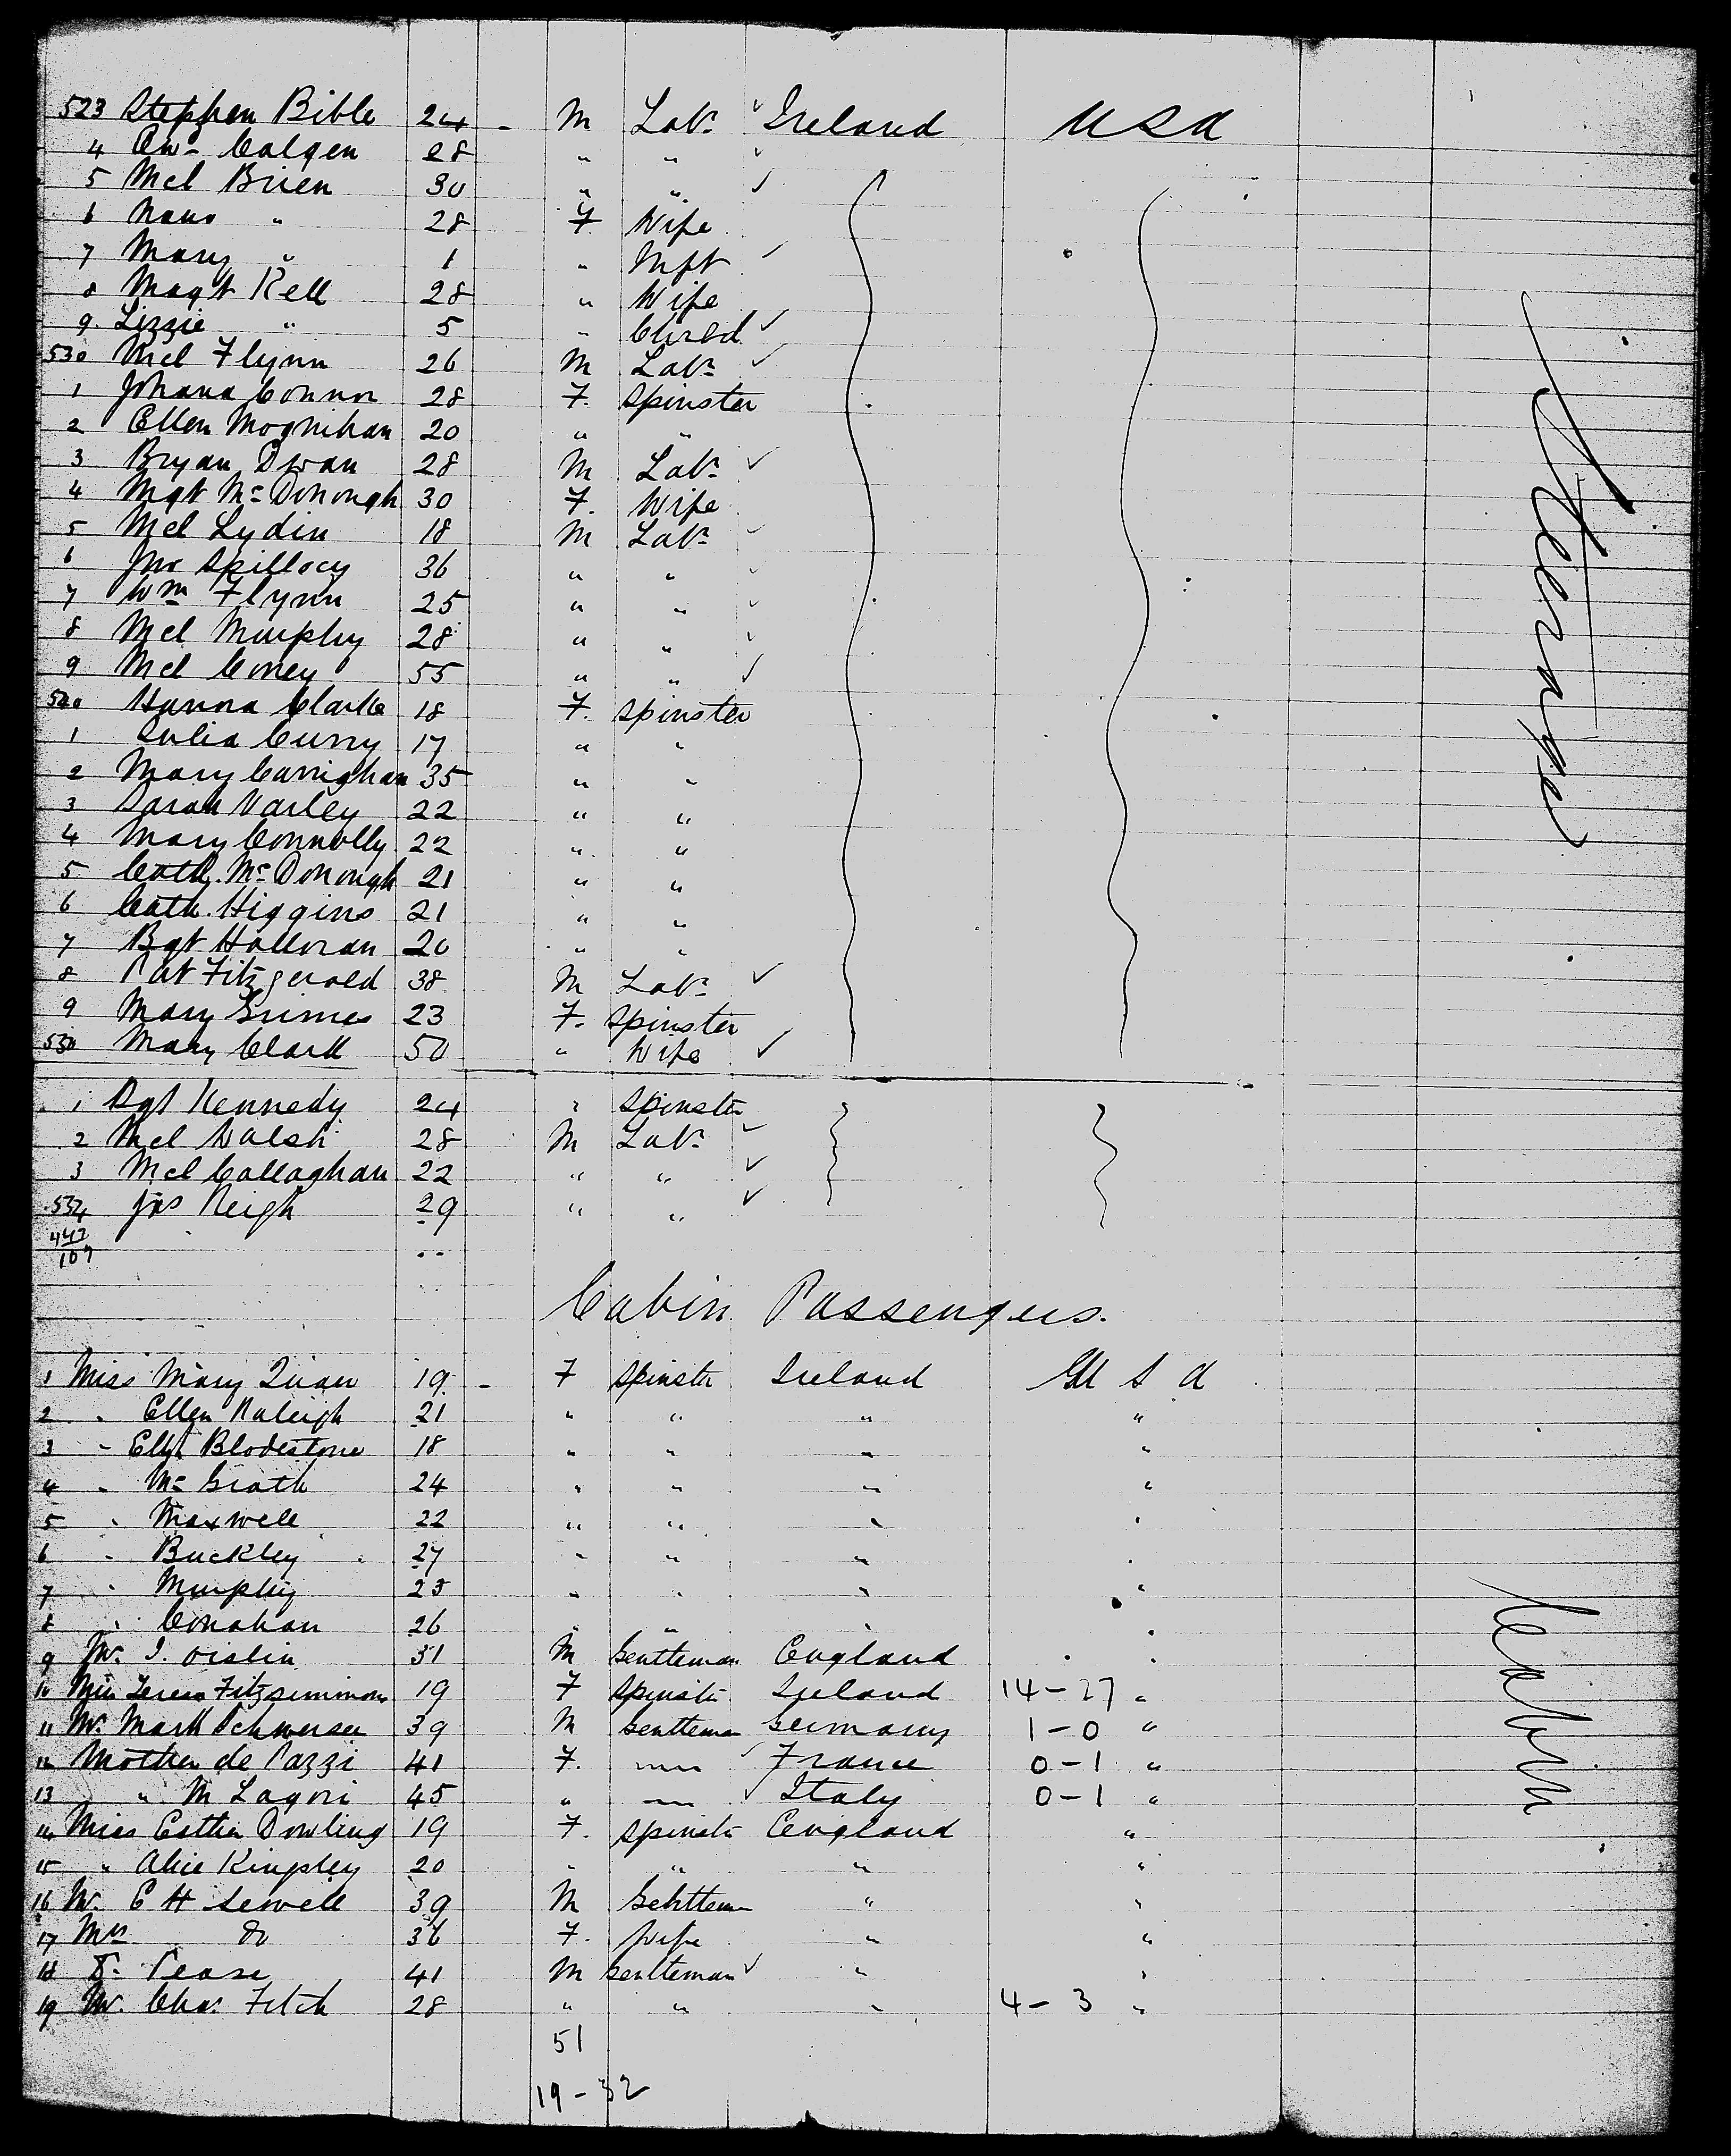 523 Stephen Bible 24 - M Labr ✓ Ireland USA
4 Own Colgen 28 " " ✓
5 Mcl Brien 30 " " ✓
6 Nano " 28 F Wife
7 Mary " 1 " Inft ✓
8 Magt Kell 28 " Wife
9 Lizzie " 5 " Child ✓
530 Mcl Flynn 26 M Labr ✓
1 Johana Connor 28 F. Spinster
2 Ellen Moynihan 20 " "
3 Bryan Dwan 28 M Labr ✓
4 Mgt McDonough 30 F. Wife
5 Mcl Lydin 18 M Labr ✓
6 Jno Spillocy 36 " " ✓
7 Wm Flynn 25 " " ✓
8 Mcl Murphy 28 " " ✓
9 Mcl Coney 55 " " ✓
540 Hanna Clarke 18 F. Spinster
1 Julia Curry 17 " "
2 Mary Carrighan 35 " "
3 Sarah Varley 22 " "
4 Mary Connolly 22 " "
5 Cath. McDonough 21 " "
6 Cath. Higgins 21 " "
7 Bgt Holloran 20 " "
8 Pat Fitzgerald 38 M Labr ✓
9 Mary Grimes 23 F. Spinster
530 Mary Clark 50 " Wife ✓
1 Bgt Kennedy 24 " Spinster
2 Mcl Walsh 28 M Labr ✓
3 Mcl Callaghan 22 " " ✓
534 Jas Neigh 29 " " ✓
447
107
Steerage
Cabin Passengers.
1 Miss Mary Quan 19 - F Spinstr Ireland U S A
2 " Ellen Raleigh 21 " " " "
3 " Ellt Blodestone 18 " " " "
4 " McGrath 24 " " " "
5 " Maxwell 22 " " " "
6 " Buckley 27 " " " "
7 " Murphy 23 " " " "
8 " Conahan 26 " " " "
9 Mr. J. 31 M Gentleman England "
10 Miss Teresa Fitzsimmons 19 F Spinstr Ireland 14-27 "
11 Mr Mark 39 M Gentleman Germany 1-0 "
12 Mother de Pazzi 41 F. ✓ France 0-1 "
13 " M Lagori 45 " ✓ Italy 0-1 "
14 Miss Esther Dowling 19 F. Spinstr England "
15 " Alice Kingsley 20 " " " "
16 Mr. E H Sewell 39 M Gentleman " "
17 Mrs do 36 F. Wife " "
18 Dr. Pease 41 M Gentleman ✓ " "
19 Mr. Chas. Fitch 28 " " " 4-3 "
51
19-32
Cabin